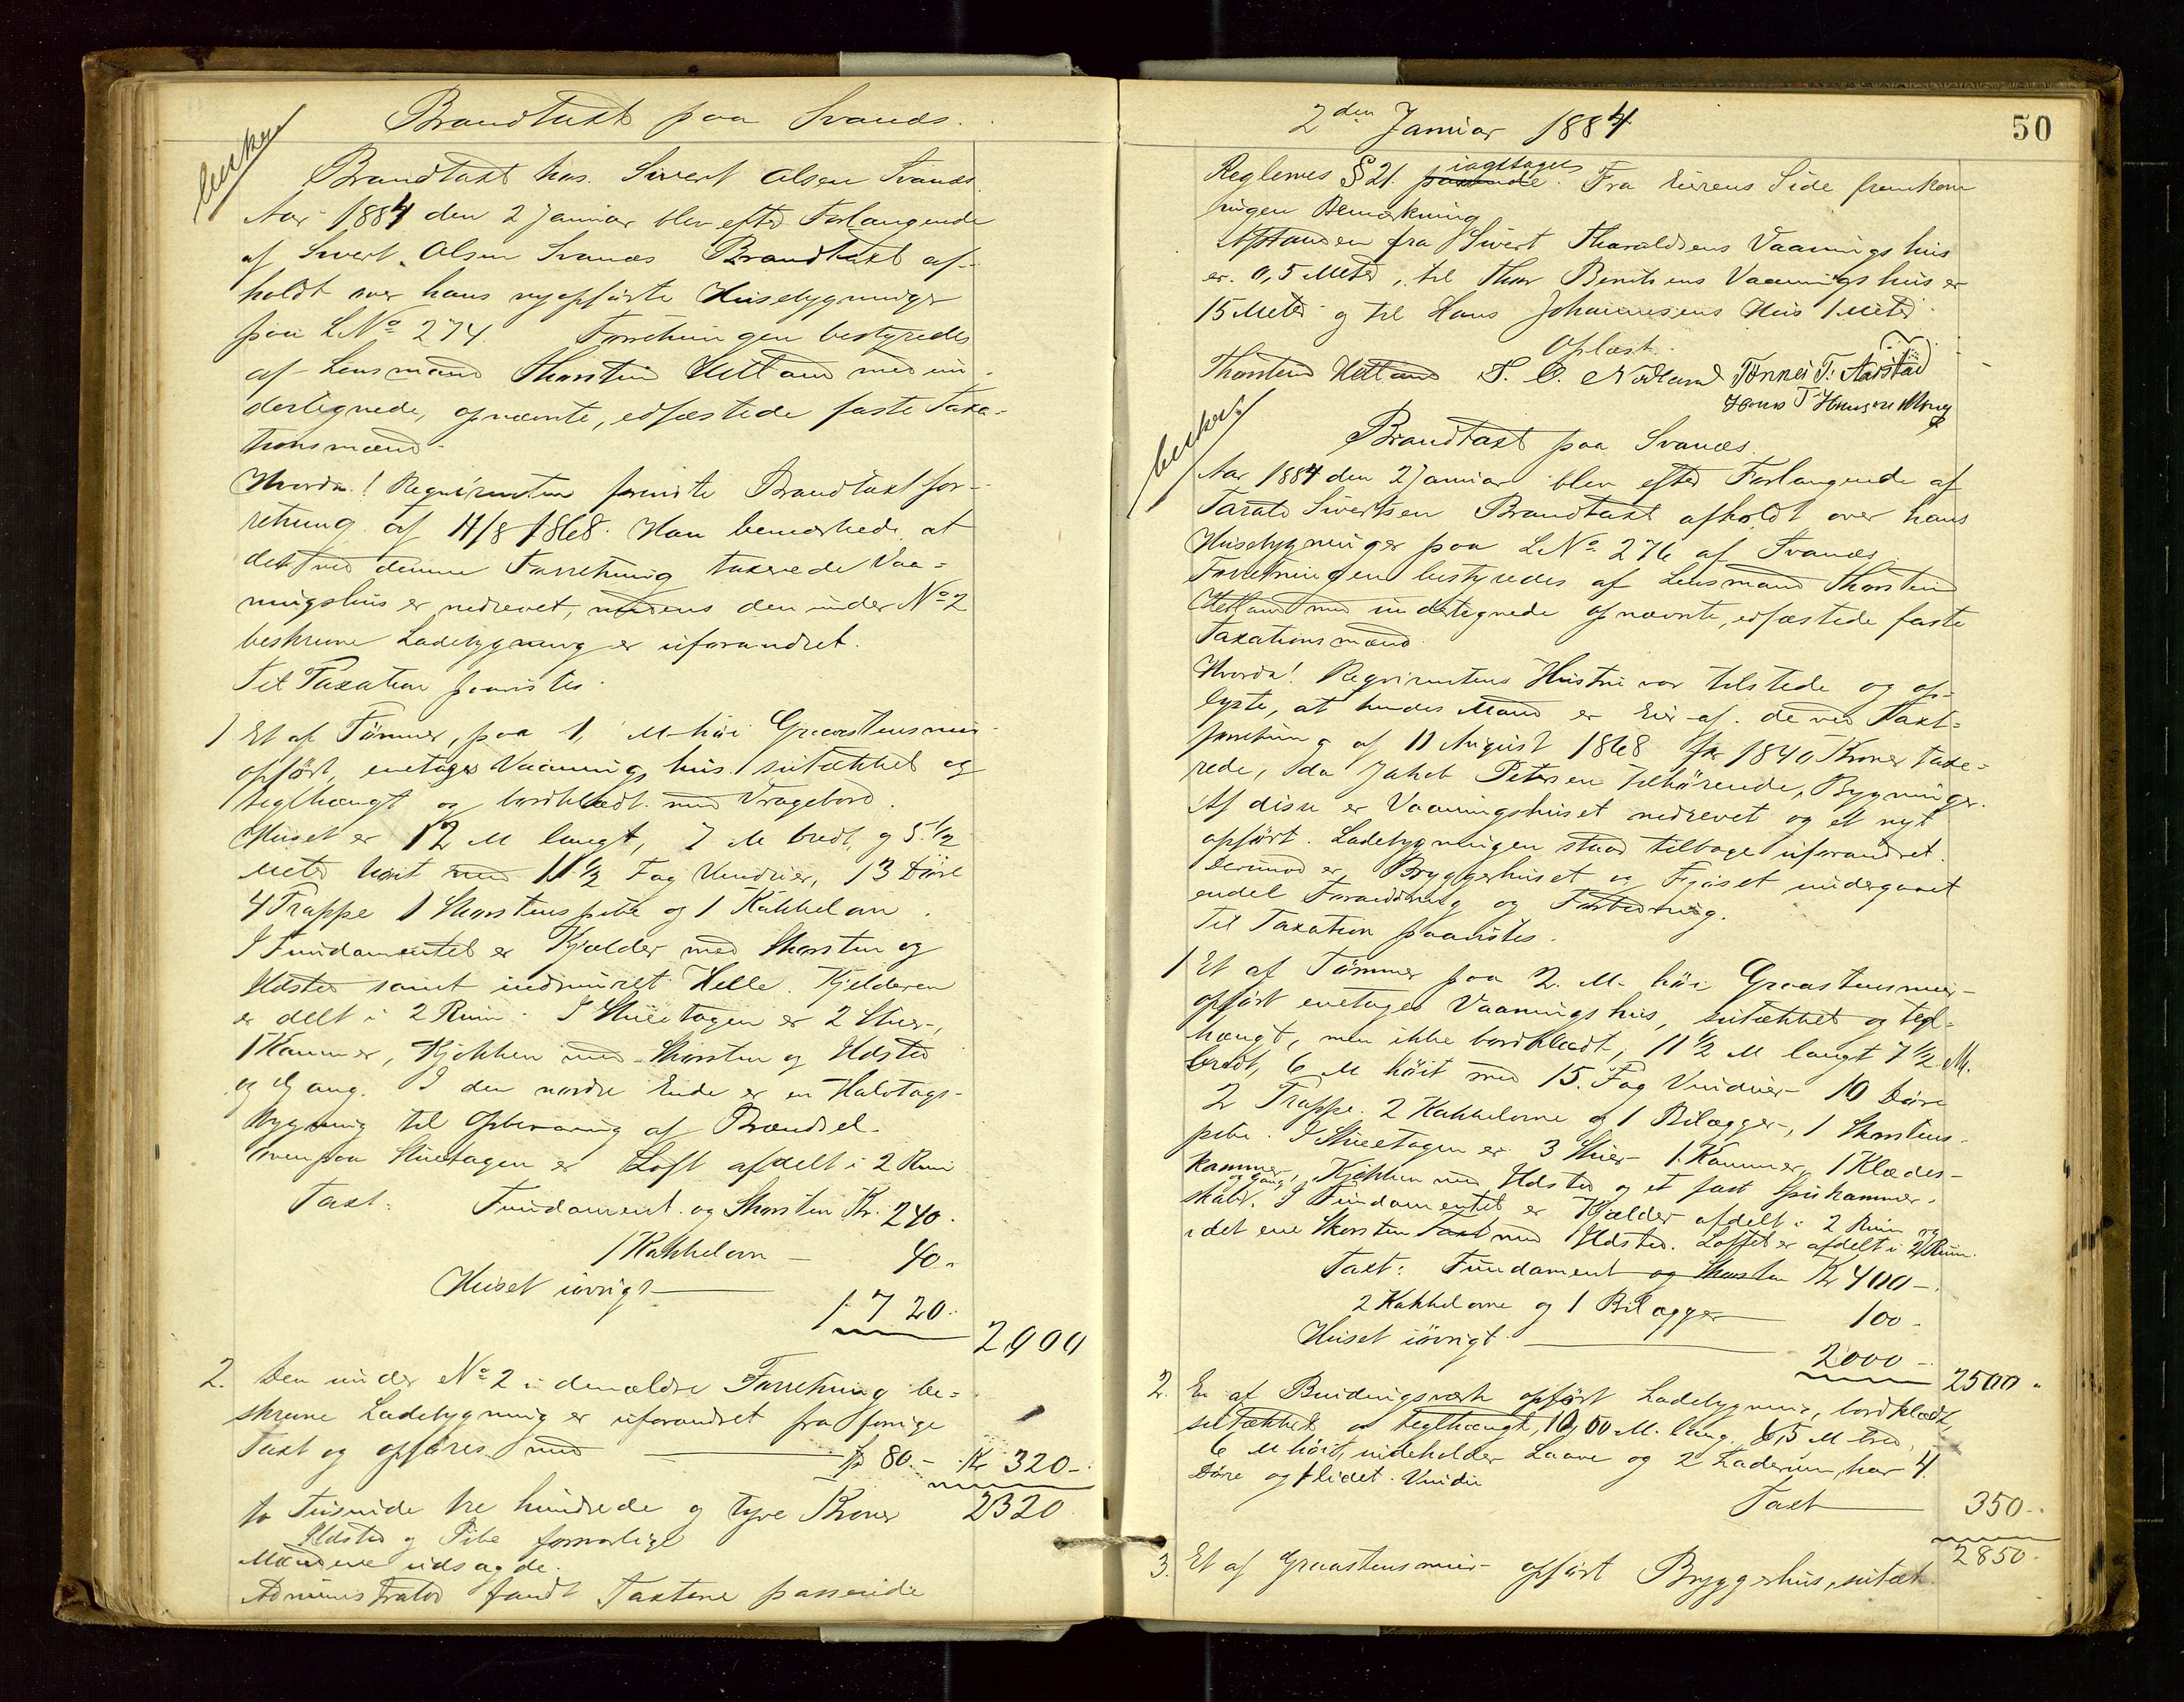 Brandtaxt paa Svanæs.
Brandtaxt hos Sivert Olsen Svanæs.
Aar 1884 den 2 Januar blev efter Forlangende
af Sivert Olsen Svanæs Brandtaxt af-
holdt over hans nyopførte Husebygninger
paa L№ 274. Forretningen bestyredes
af Lensmand Thorstein Hetland med un-
dertegnede, opnævnte, edfæstede faste Taxa-
tionsmænd.
Hvorda! Reqvirenten foreviste Brandtaxtfor-
retning af 11/8 1868. Han bemærkede at
det ved denne Forretning taxerede Vaa-
ningshus er nedrevet, medens den under № 2
beskrevne Ladebygning er uforandret.
Til Taxation paavistes.
1 Et af Tømmer, paa 1, M høi Graastensmur
opført, enetages Vaaningshus sutækket og
teglhængt og bordklædt med Vragebord.
Huset er 12 M langt, 7 M bredt, og 5 1/2
Meter høit med 11 1/2 Fag Vinduer, 13 Døre
4 Trappe 1 Skorstenspibe og 1 Kakkelovn.
I Fundamentet er Kjælder med Skorsten og
Ildsted samt indmuret Helle. Kjelderen
er delt i 2 Rum. I Stuetagen er 2 Stuer,
1 Kammer, Kjøkken med Skorsten og Ildsted
og Gang. I den nordre Ende er en Halvtags-
bygning til Opbevaring af Brændsel.
Ovenpaa Stuetagen er Loft afdelt i 2 Rum
Taxt: Fundament og Skorsten Kr. 240.
1 Kakkelovn — 40.
Huset iøvrigt — 1720.
2000
2. Den under № 2 i den ældre Forretning be-
skrevne Ladebygning er uforandret fra forrige
Taxt og opføres med — 80.— Kr 320.
2320
to Tusinde tre hundrede og tyve Kroner
Ildsted og Pibe forsvarlige
Mændene udsagde.
Administrator fandt Taxterne passende
2den Januar 1884
50
Reglernes § 21. passende iagttaget. Fra Eierens Side fremkom
ingen Bemærkning
Afstanden fra Sivert Tharaldsens Vaaningshus
er 0,5 Meter, til Thor Berntsens Vaaningshus er
15 Meter og til Hans Johannesens Hus 1 Meter.
Oplæst.
Thorstein Hetland S. O. Nodland Tønnes T. Aarstad
Hans T Hansen
Brandtaxt paa Svanæs.
Aar 1884 den 2 Januar blev efter Forlangende af
Tarald Sivertsen Brandtaxt afholdt over hans
Husebygninger paa L№ 276 af Svanæs.
Forretningen bestyredes af Lensmand Thorstein
Hetland med undertegnede opnævnte, edfæstede faste
Taxationsmænd.
Hvorda! Reqvirentens Hustru var tilstede og op-
lyste, at hendes Mand er Eier af de ved Taxt-
forretning af 11 August 1868 for 1840 Kroner taxe-
rede, da Jakob Petersen tilhørende, Bygninger.
Af disse er Vaaningshuset nedrevet og et nyt
opført. Ladebygningen staar tilbage uforandret.
Derimod er Bryggerhuset og Fjøset undergaaet
endel Forandring og Forbedring.
Til Taxation paavistes.
1 Et af Tømmer paa 2. M. høi Graastensmur
opført enetages Vaaningshus, sutækket og tegl-
hængt, men ikke bordklædt, 11 1/2 M langt 7 1/2 M.
bredt, 6 M høit med 15. Fag Vinduer 10 Døre
2 Trappe. 2 Kakkelovne og 1 Bilægger, 1 Skorstens-
pibe. I Stuetagen er 3 Stuer 1 Kammer, 1 Klædes-
kammer, og gang, Kjøkken med Ildsted og et fast Spiskammer-
skab. I Fundamentet er Kjælder afdelt i 2 Rum og
i det ene Skorsten Taxt med 1 Ildsted. Loftet er afdelt i 2 Rum.
Taxt: Fundament og Skorsten Kr 400—
2 Kakkelovne og 1 Bilægger — 100-
Huset iøvrigt — 2000-
2500
2. En af Bindingsværk opført Ladebygning, bordklædt,
sutækket og teglhængt, 10,00 M. lang, 6,5 M bred,
6 M høit, indeholder Laave og 2 Laderum, har 4
Døre og 1 lidet Vindu
Taxt — 350.
2850.
3. Et af Graastensmur opført Bryggerhus, sutæk